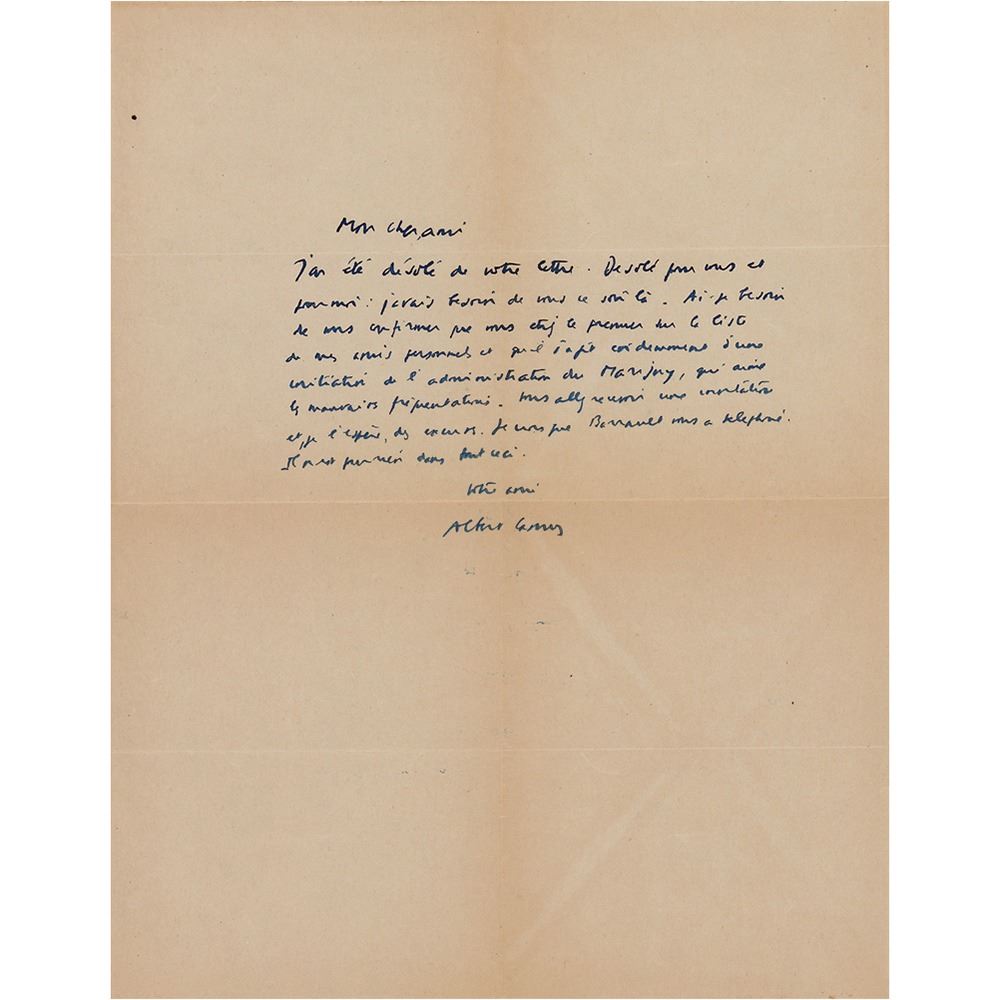 Mon cher ami
J'ai été désolé de votre lettre. Désolé pour vous et
pour moi : j'avais besoin de vous ce soir là. Ai-je besoin
de vous confirmer que vous étiez le premier sur la liste
de mes amis personnels et qu'il s'agit évidemment d'une
initiative de l'administration du Marigny, qui aime
les mauvaises fréquentations. Vous allez recevoir une invitation
et, je l'espère, des excuses. Je crois que Barrault vous a téléphoné.
Il n'est pour rien dans tout ceci.
Votre ami
Albert Camus